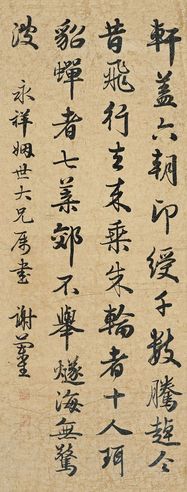 軒蓋六朝印綬千數騰趠今
昔飛行去來乘朱輪者十人珥
貂蟬者七葉郊不舉燧海無驚
波
永祥姻世大兄属書 謝